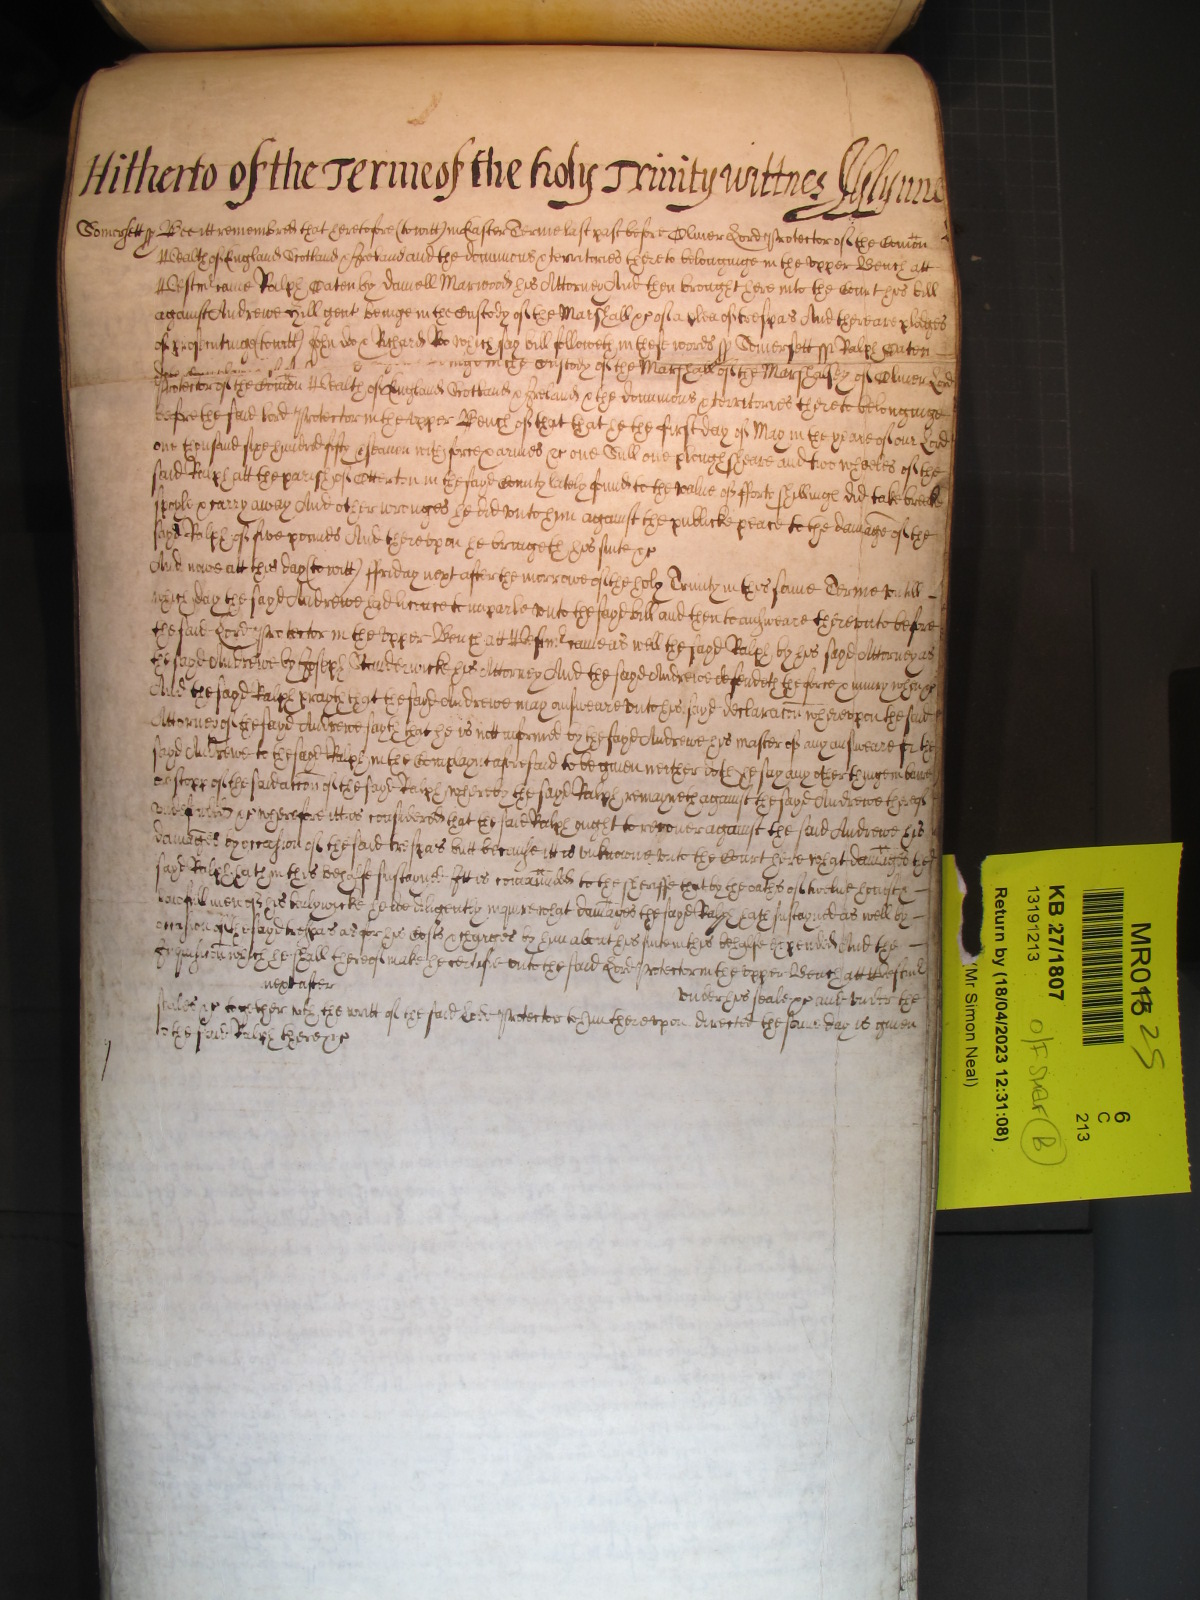 Hitherto of the Terme of the holy Trinity wittnes JGlynne
Somersett ss Bee itt remembred that heretofore (to witt) in Easter Terme last past before Oliver Lord Protector of the Comon
Wealth of England Scotland & Ireland and the dominions & territories thereto belonginge in the upper Bench att
Westmr came Ralph Oaten by Daniell Marwood his Attorney And then brought here into the Court his bill
against Andrewe Hill gent beinge in the Custody of the Marshall &c of a plea of trespas And there are pledges
of prosentinge (to witt) John Do & Richard Ro which say bill followeth in these words ss Somersett ss Ralph Oaten
beinge in the Custody of the Marshall of the Marshalsey of Oliver Lord
Protector of the Comon Wealth of England Scotland & Ireland & the dominions & territories thereto belonginge
before the said lord Protector in the upper Bench of that that he the first day of May in the yeare of our Lord
one thousand sixe hundred fifty & seaven with force & armes &c one Sull one plough sheare and two wheeles of the
said Ralph att the parish of Otterton in the sayd County lately found to the value of fforty shillings did take breake
spoyle & carry away And other wronges he did unto him against the publicke peace to the damage of the
sayd Ralph of five pounds And thereupon he bringeth his suite &c
And nowe att this day (to witt) ffriday next after the morrowe of the holy Trinity in this same Terme untill
which day the sayd Andrewe had licence to imparle unto the sayd bill and then to answeare thereunto before
the said Lord Protector in the upper Bench att Westmr came as well the sayd Ralph by his sayd Attorney as
the sayd Andrewe by Joseph Standerwicke his Attorney And the sayd Andrewe defendeth the force & iniury when &c
And the sayd Ralph prayth that the sayd Andrewe may answeare unto his sayd declaracon whereupon the said
Attorney of the sayd Andrewe sayth that he is nott informed by the sayd Andrewe his master of any answeare for the
sayd Andrewe to the sayd Ralph in the Complaynt aforesaid to be given neither doth he say any other thinge in barre
or stopp of the said accon of the sayd Ralph whereby the sayd Ralph remayneth against the sayd Andrewe thereof
undefended &c wherefore itt is considered that the said Ralph ought to recover against the said Andrewe his
damages by occasion of the said trespas butt because itt is unknowne unto the Court here what damages the
sayd Ralph hath in this behalfe sustayned Itt is comanded to the sheriffe that by the oathes of twelve honest &
lawfull men of his bailywicke he doe diligently inquire what damages the sayd Ralph hath sustayned as well by
occasion of the sayd trespas as for his Costs & charges by him about his suite in this behalfe expended And the
Inquisicon which he shall thereof make he certifie unto the said Lord Protector in the upper Bench att Westmr
next after under his seale &c and under the
seales &c together with the writt of the said Lord Protector to him thereupon directed the same day is given
to the said Ralph there &c
MR016 25
6
C
213
KB 27/1807
13191213 O/F SHELF B
Return by (18/04/2023 12:31:08)
(Mr Simon Neal)